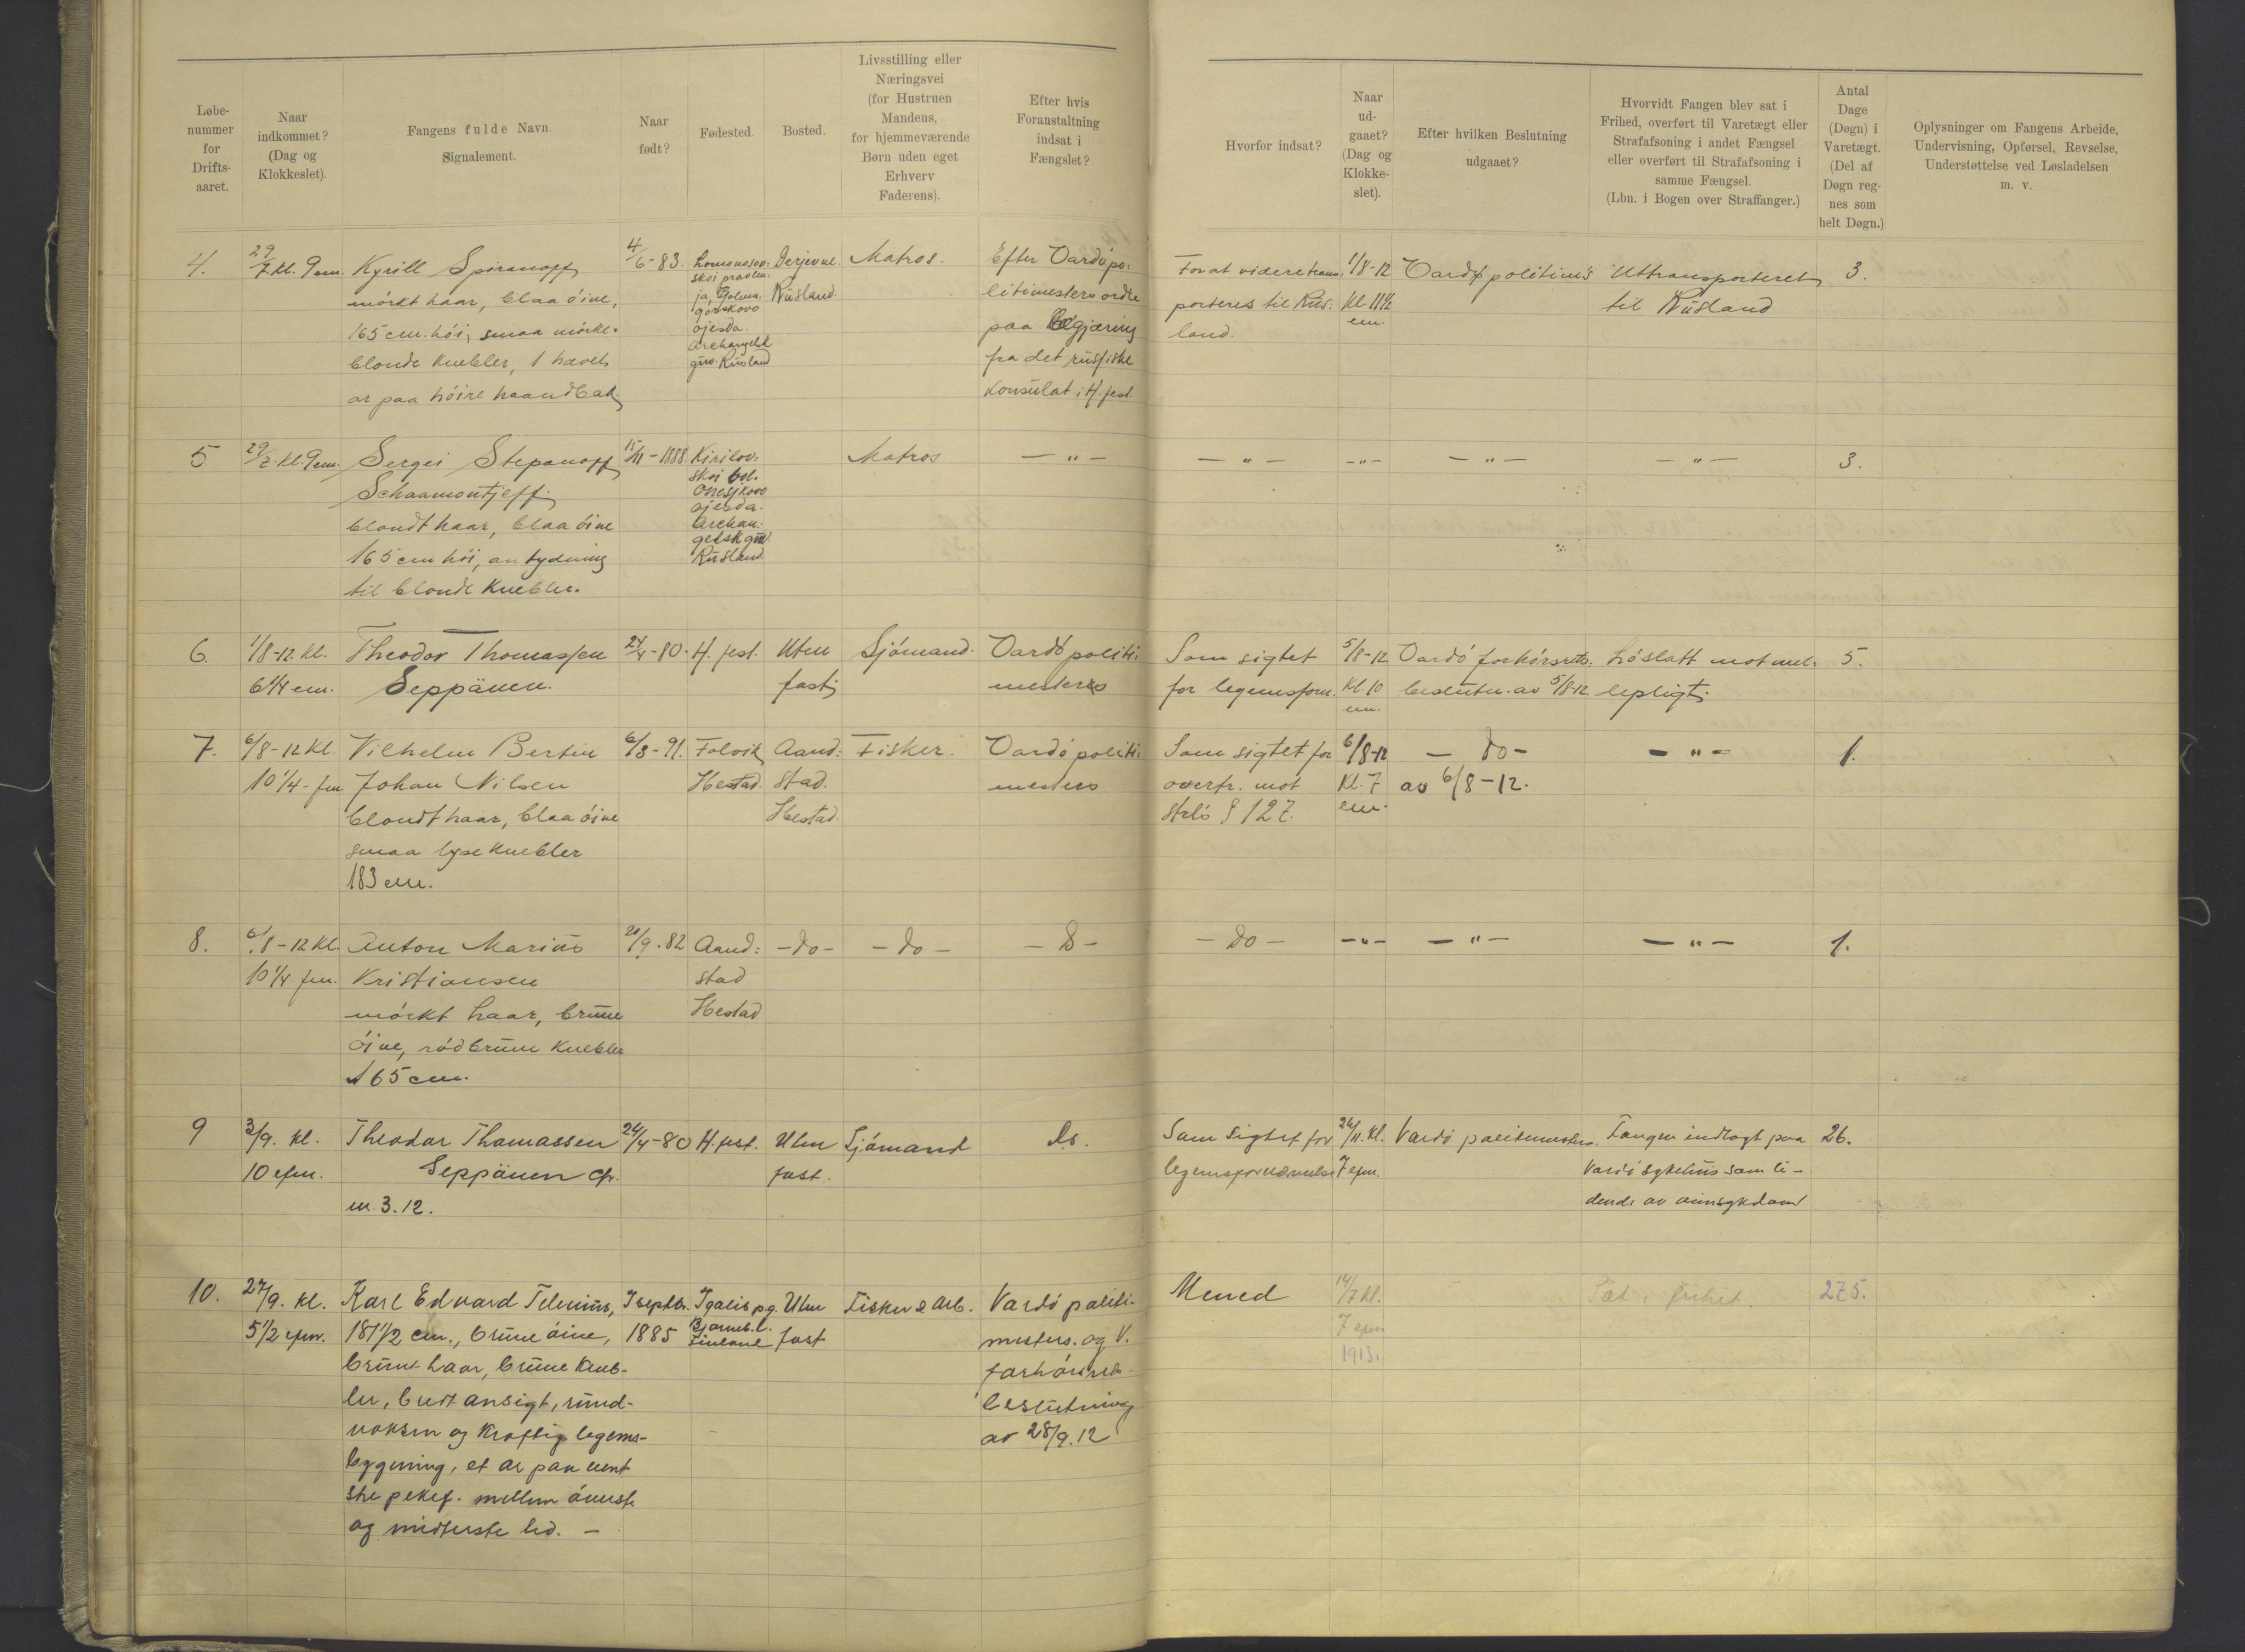 Løbe-
nummer
for
Drifts-
aaret.
Naar
indkommet?
(Dag og
Klokkeslet).
Fangens fulde Navn.
Signalement.
Naar
født?
Fødested.
Bosted.
Livsstilling eller
Næringsvei
(for Hustruen
Mandens,
for hjemmeværende
Børn uden eget
Erhverv
Faderens).
Efter hvis
Foranstaltning
indsat i
Fængslet?
Hvorfor indsat?
Naar
ud-
gaaet?
(Dag og
Klokke-
slet).
Efter hvilken Beslutning
udgaaet?
Hvorvidt Fangen blev sat i
Frihed, overført til Varetægt eller
Strafafsoning i andet Fængsel
eller overført til Strafafsoning i
samme Fængsel.
(Lbn. i Bogen over Straffanger.)
Antal
Dage
(Døgn) i
Varetægt.
(Del af
Døgn reg-
nes som
helt Døgn.)
Oplysninger om Fangens Arbeide,
Undervisning, Opførsel, Revselse,
Understøttelse ved Løsladelsen
m. v.
4.
29/7. kl. 9 em.
Kyrill Spiranoff
mørkt haar, blaa øine,
165 cm. høi, smaa mørke-
blonde knebler, 1 hævet
ar paa høire haandbak
4/6-83.
Lomonosov-
skoi
ja,
gorskovo
ojesda.
Archangelsk
guv. Rusland
Derjevne.
Rusland.
Matros.
Efter Vardø po-
litimesters ordre
paa begjæring
fra det russiske
konsulat i H.fest.
For at videre trans-
porteres til Rus-
land.
1/8-12
kl. 11½
em.
Vardø politim's
Uttransporteret
til Rusland
3.
5
29/7. kl. 9 em.
Sergei Stepanoff
Schaamontjeff.
blondt haar, blaa øine
165 cm høi, antydning
til blonde knebler.
15/11-1888.
Kirilov-
skoi vol.
Onesjkovo
ojesda.
Archan-
gelsk guv.
Rusland.
Matros
— " —
— " —
- " -
— " —
— " —
3.
6.
1/8-12. kl.
6¼ em.
Theodor Thomassen
Seppänen.
24/4-80.
H.fest.
Uten
fast
Sjømand.
Vardø politi-
mesters
Som sigtet
for legemsforn.
5/8-12
kl. 10
em.
Vardø forhørsrets-
beslutn. av 5/8-12.
Løslatt mot mel-
lepligt.
5.
7.
6/8-12 kl.
10¼ - fm
Vilhelm Bertin
Johan Nilsen
blondt haar, blaa øine
smaa lyse knebler
183 cm.
6/3-91.
Folvik
Hestad.
Aand-
stad.
Hestad.
Fisker.
Vardø politi-
mesters
Som sigtet for
overtr. mot
strlo § 127.
6/8-12
kl. 7
em.
— do —
av 6/8-12.
— " —
1.
8.
6/8-12 kl.
10¼ fm.
Anton Marius
Kristiansen
mørkt haar, brune
øine, rødbrune knebler
165 cm.
21/9.82
Aand-
stad
Hestad
— do —
— do —
— D —
— do —
- " -
— " —
— " —
1.
9
3/9. kl.
10 efm.
Theodor Thomassen
Seppänen cfr.
n. 3.12.
24/4-80
H.fest.
Uten
fast.
Sjømand
Ds.
Som sigtet for
legemsfornærmelse
26/11. kl.
7 efm.
Vardø politimesters
Fangen indlagt paa
Vardø sykehus som li-
dende av sinsykdom
26.
10.
27/9. kl.
5½ efm.
Karl Edvard Telenius,
181½ cm., brune øine,
brunt haar, brune kneb-
ler, bredt ansigt, rund-
voksen og kraftig legems-
bygning, et ar paa vent
stre pekef. mellem øverste
og midterste led. —
7 septbr.
1885
Igalis p.g.
Bjørneb. l.
Finland
Uten
fast
Fisker & Arb.
Vardø politi-
mesters. og V.
forhørsrets-
beslutning
av 28/9.12
Mened
14/7 kl.
7 efm
1913.
Sat i frihet.
275.